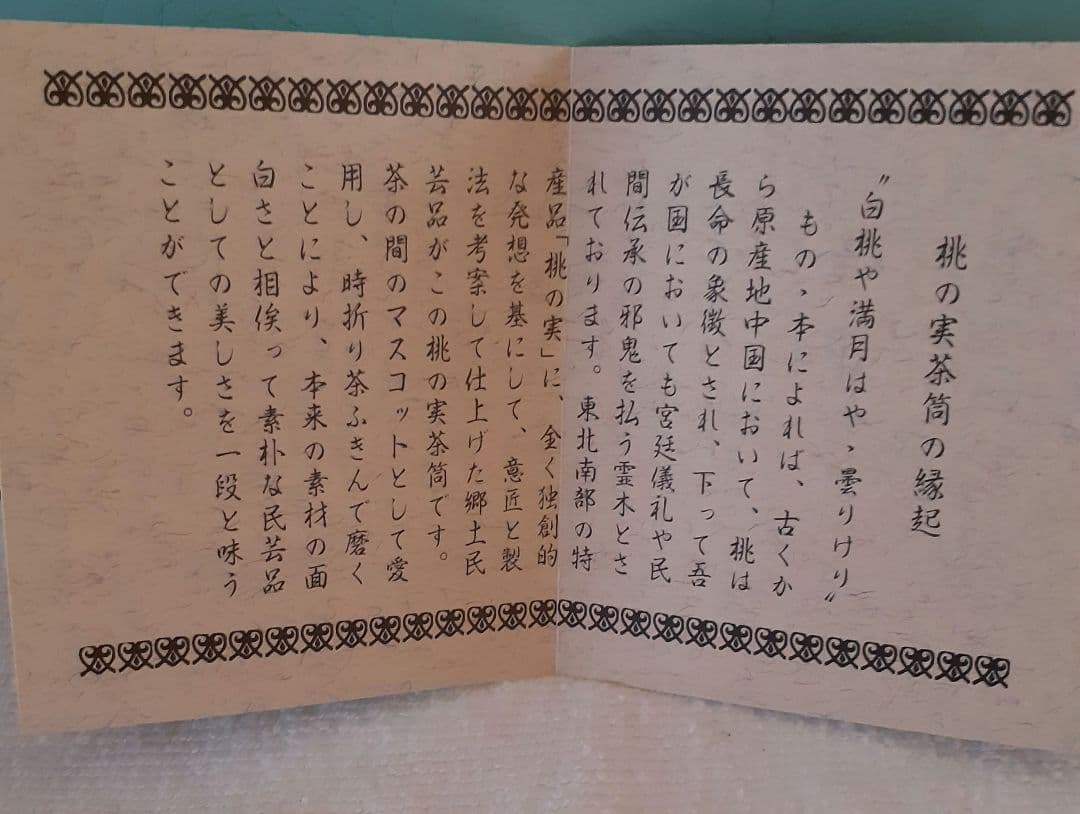 桃の実茶筒の縁起
〝白桃や満月はやゝ曇りけり〟
ものゝ本によれば、古くか
ら原産地中国において、桃は
長命の象徴とされ、下って吾
が国においても宮廷儀礼や民
間伝承の邪鬼を払う霊木とさ
れております。東北南部の特
産品「桃の実」に、全く独創的
な発想を基にして、意匠と製
法を考案して仕上げた郷土民
芸品がこの桃の実茶筒です。
茶の間のマスコットとして愛
用し、時折り茶ふきんで磨く
ことにより、本来の素材の面
白さと相俟って素朴な民芸品
としての美しさを一段と味う
ことができます。